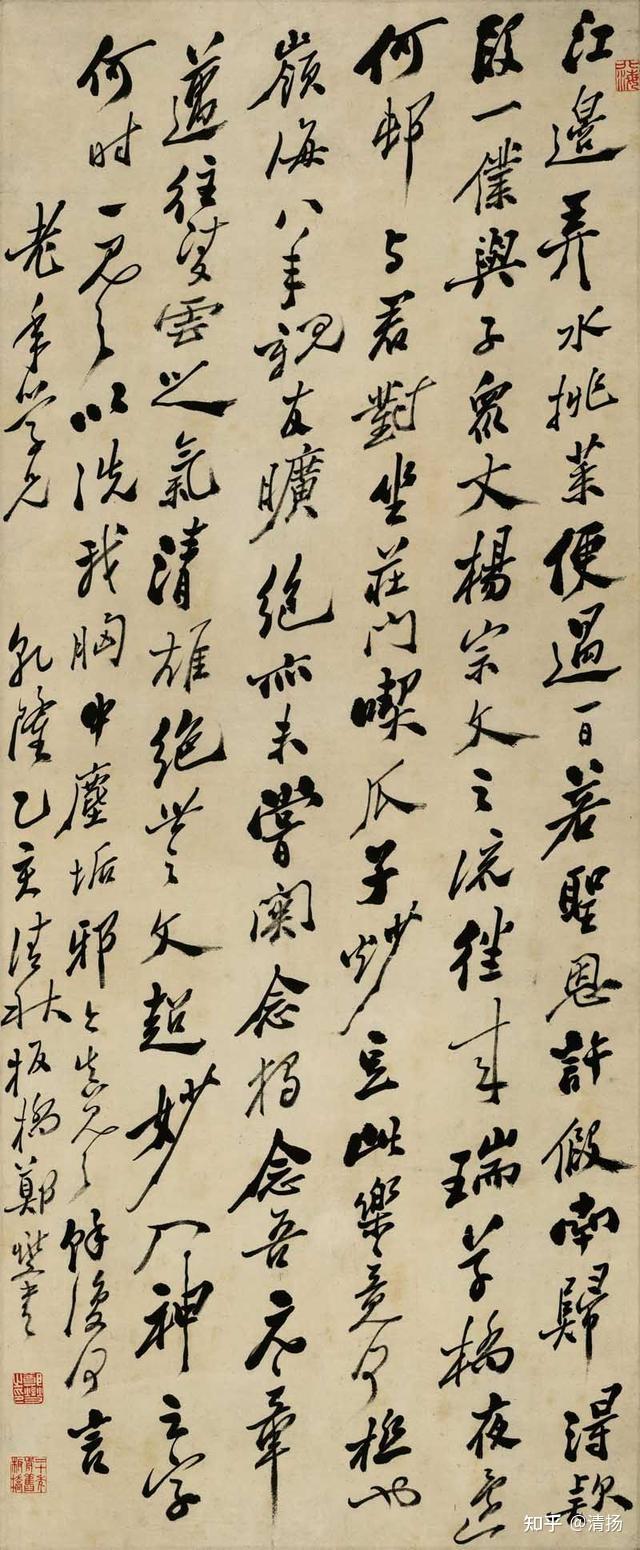 江邊弄水挑菜便過一日若聖恩許假南歸得款
段一僕與子眾丈楊宗文之流往來瑞草橋夜還
何邨与君對坐莊門喫瓜子炒豆此樂竟何極也
嶺海八年親友曠絕亦未嘗關念獨念吾元章
邁往凌雲之氣清雄絕世之文超妙入神之字
何時一見之以洗我胸中塵垢邪今真見之餘復何言
老年學兄
乾隆乙亥清秋板橋鄭燮書
鄭燮之印
知乎 @清扬